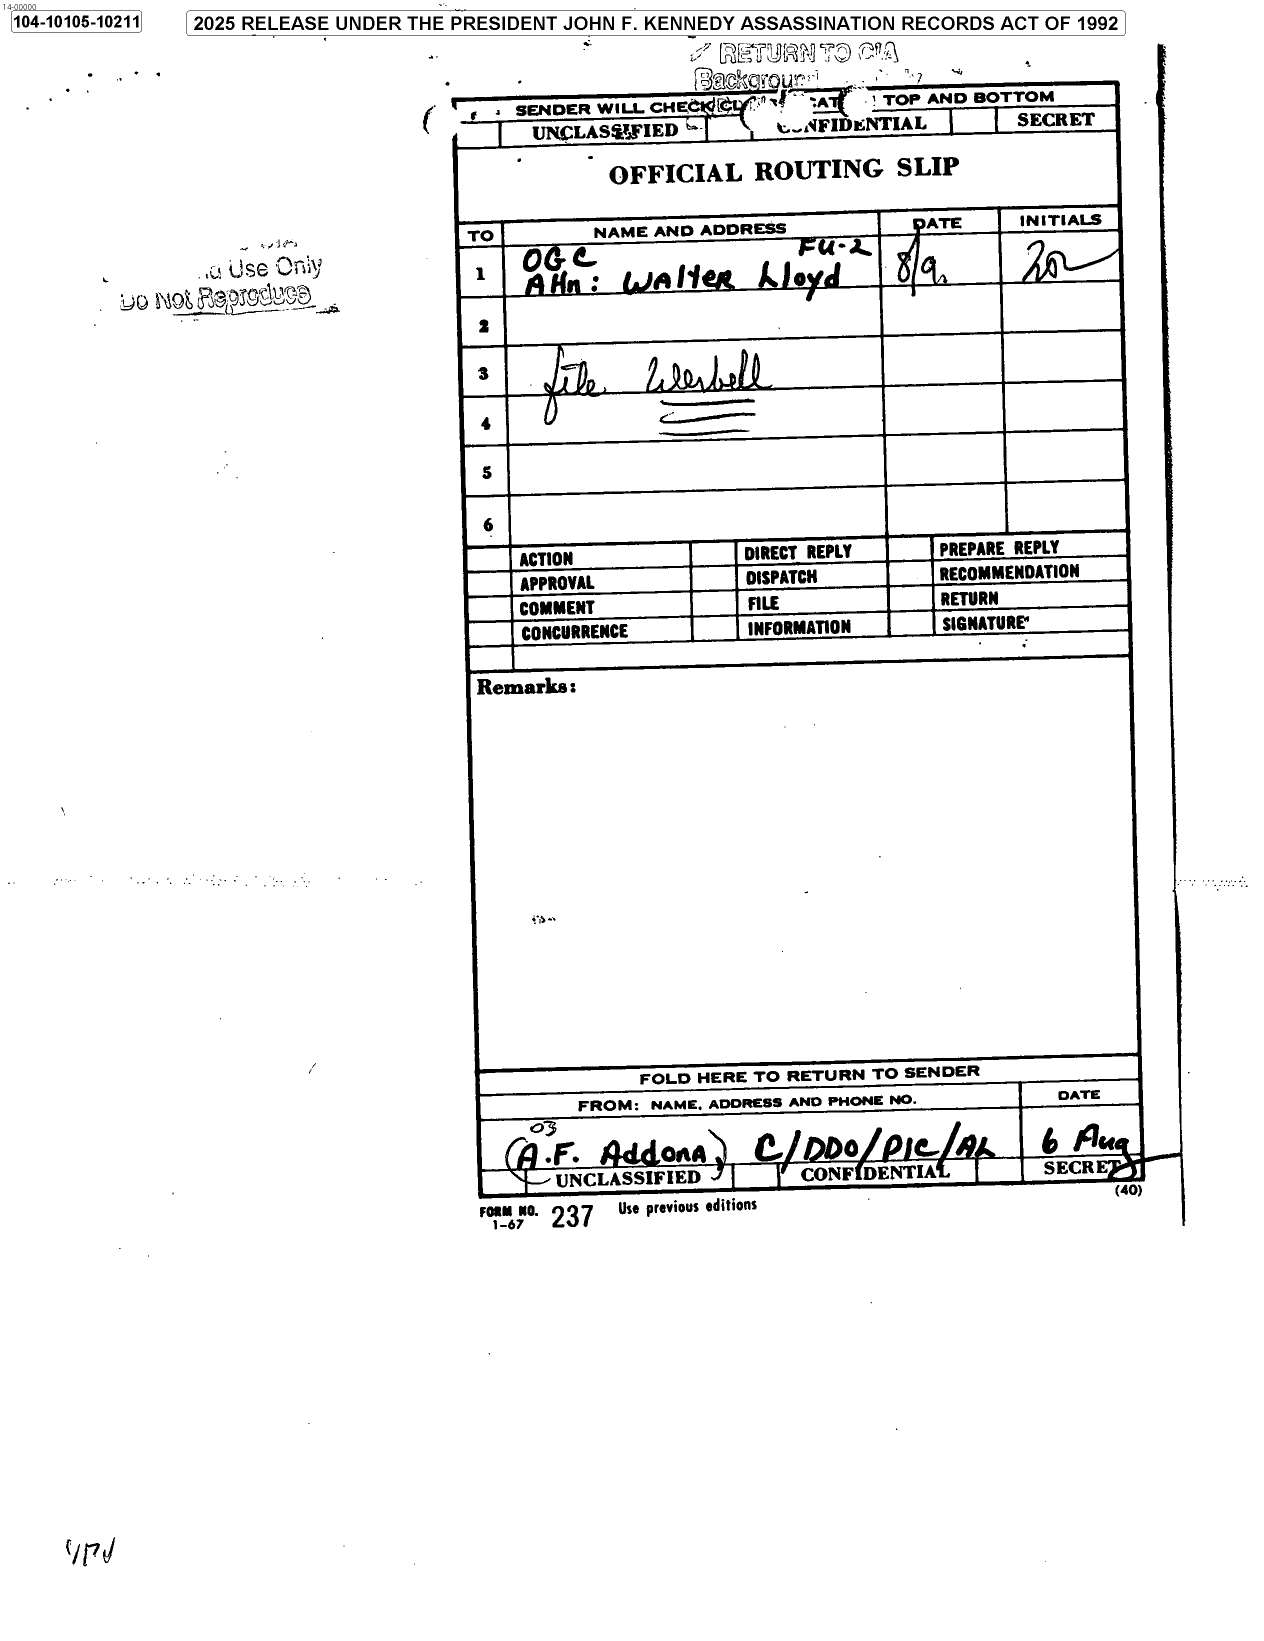 14-00000
104-10105-10211
2025 RELEASE UNDER THE PRESIDENT JOHN F. KENNEDY ASSASSINATION RECORDS ACT OF 1992
RETURN TO CIA
Background
Use Only
Do Not Reproduce
SENDER WILL CHECK TOP AND BOTTOM
UNCLASSIFIED CONFIDENTIAL SECRET
OFFICIAL ROUTING SLIP
TO NAME AND ADDRESS DATE INITIALS
1 OGC FU-2
Attn: Walter Lloyd 8/9
2
3 file Werbell
4
5
6
ACTION DIRECT REPLY PREPARE REPLY
APPROVAL DISPATCH RECOMMENDATION
COMMENT FILE RETURN
CONCURRENCE INFORMATION SIGNATURE
Remarks:
FOLD HERE TO RETURN TO SENDER
FROM: NAME, ADDRESS AND PHONE NO. DATE
03
(A.F. Addona) C/DDO/PIC/AL 6 Aug
UNCLASSIFIED CONFIDENTIAL SECRET
FORM NO. 237 Use previous editions (40)
1-67